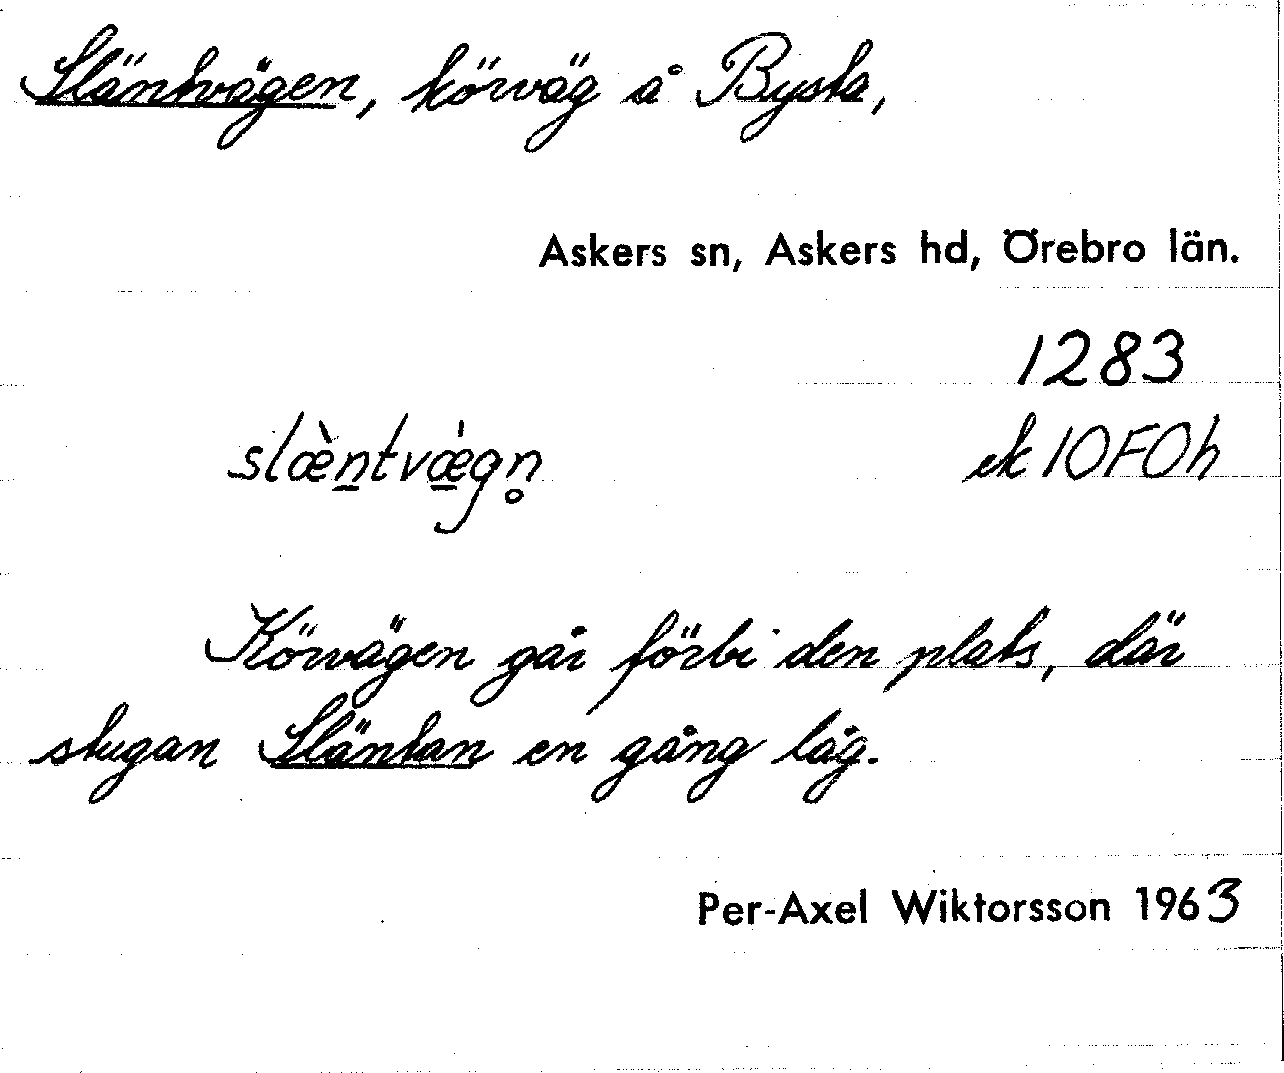 Släntvägen, körväg å Bysta,
Askers sn, Askers hd, Örebro län.
1283
slæ̀n̲tvæ̲̍gn̥
ek 10F0h
Körvägen går förbi den plats, där
stugan Släntan en gång låg.
Per-Axel Wiktorsson 1963